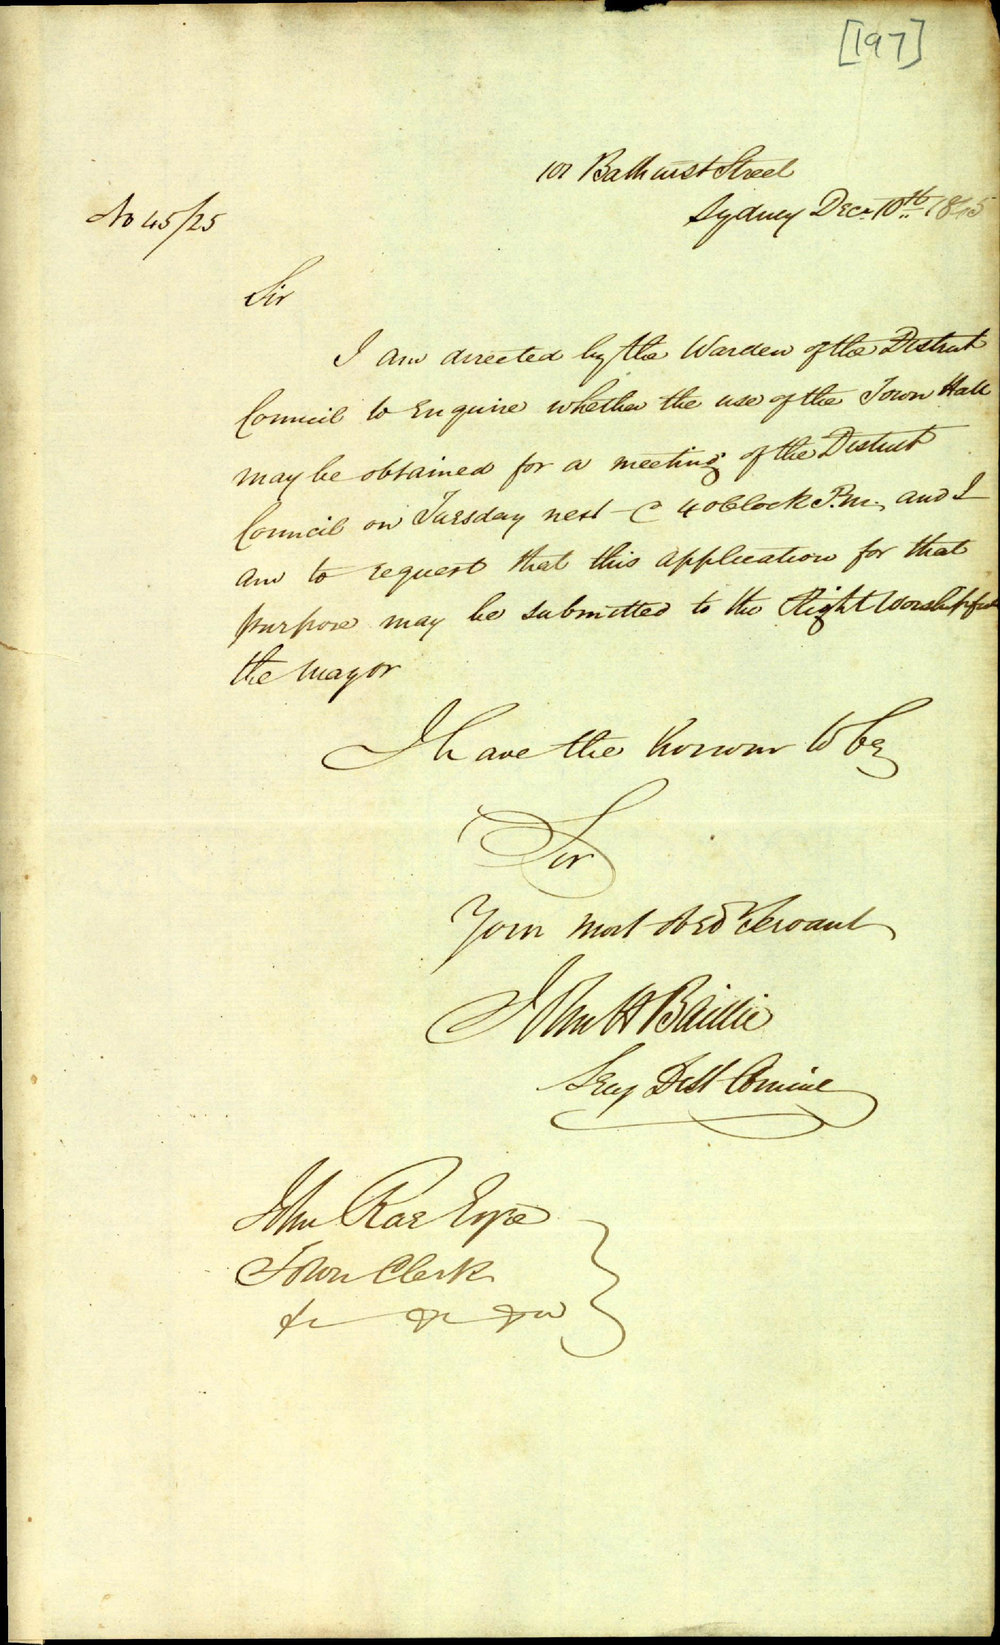 [197]
101 Bathurst Street
No 45/25
Sydney Decr 10th 1845
Sir
I am directed by the Warden of the District
Council to Enquire whether the use of the Town Hall
may be obtained for a meeting of the District
Council on Tuesday next @ 4 oClock P.m, and I
am to request that this application for that
purpose may be submitted to the Right Worshipful
the Mayor
I have the honour to be
Sir
Your most obed Servant
John H Baillie
Secy Dist Council
John Rae Esqre
Town Clerk
&c &c &c